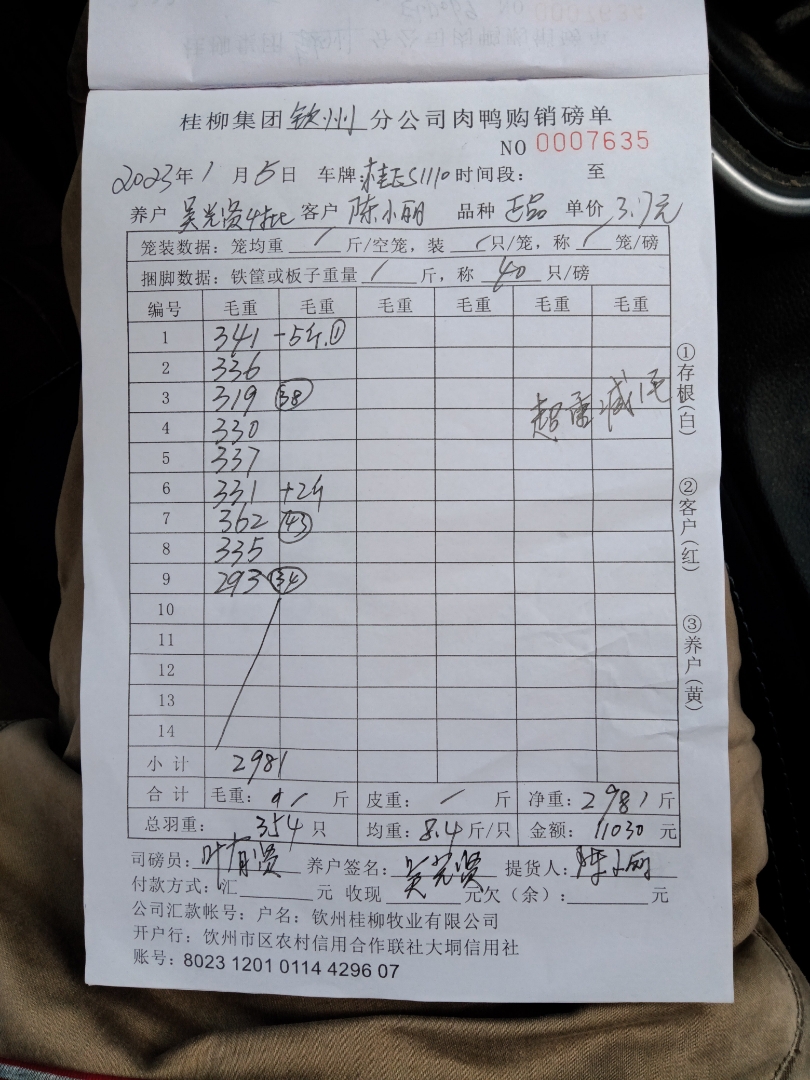 桂柳集团钦州分公司肉鸭购销磅单
NO 0007635
2023年1月5日 车牌:桂ES1110 时间段: 至
养户 吴光贤4批 客户 陈小丽 品种 正品 单价 3.7元
笼装数据:笼均重 / 斤/空笼,装 / 只/笼,称 / 笼/磅
捆脚数据:铁筐或板子重量 / 斤,称 40 只/磅
编号 毛重 毛重 毛重 毛重 毛重 毛重
1 341 -5斤.①
2 336
3 319 38
4 330 超重减1毛
5 337
6 331 +2斤
7 362 43
8 335
9 293 34
10
11
12
13
14
小计 2981
合计 毛重: / 斤 皮重: / 斤 净重:2981斤
总羽重: 354只 均重:8.4斤/只 金额:11030元
司磅员:叶有贤 养户签名:吴光贤 提货人:陈小丽
付款方式:汇 元 收现 元欠(余): 元
公司汇款帐号:户名:钦州桂柳牧业有限公司
开户行:钦州市区农村信用合作联社大垌信用社
账号:8023 1201 0114 4296 07
①存根(白)
②客户(红)
③养户(黄)